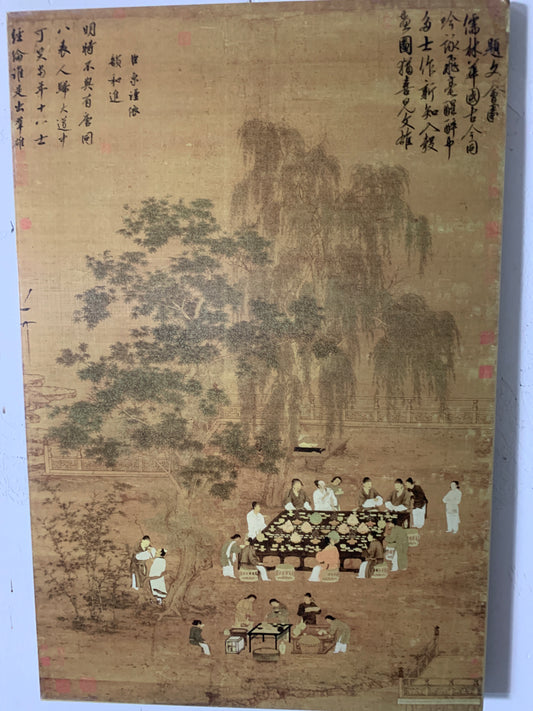 題文會圖
儒林華國古今同
吟詠飛毫醒醉中
多士作新知入彀
畫圖猶喜見文雄
臣京謹依
韻和進
明時不與有唐同
八表人歸大道中
可笑當年十八士
經綸誰是出羣雄